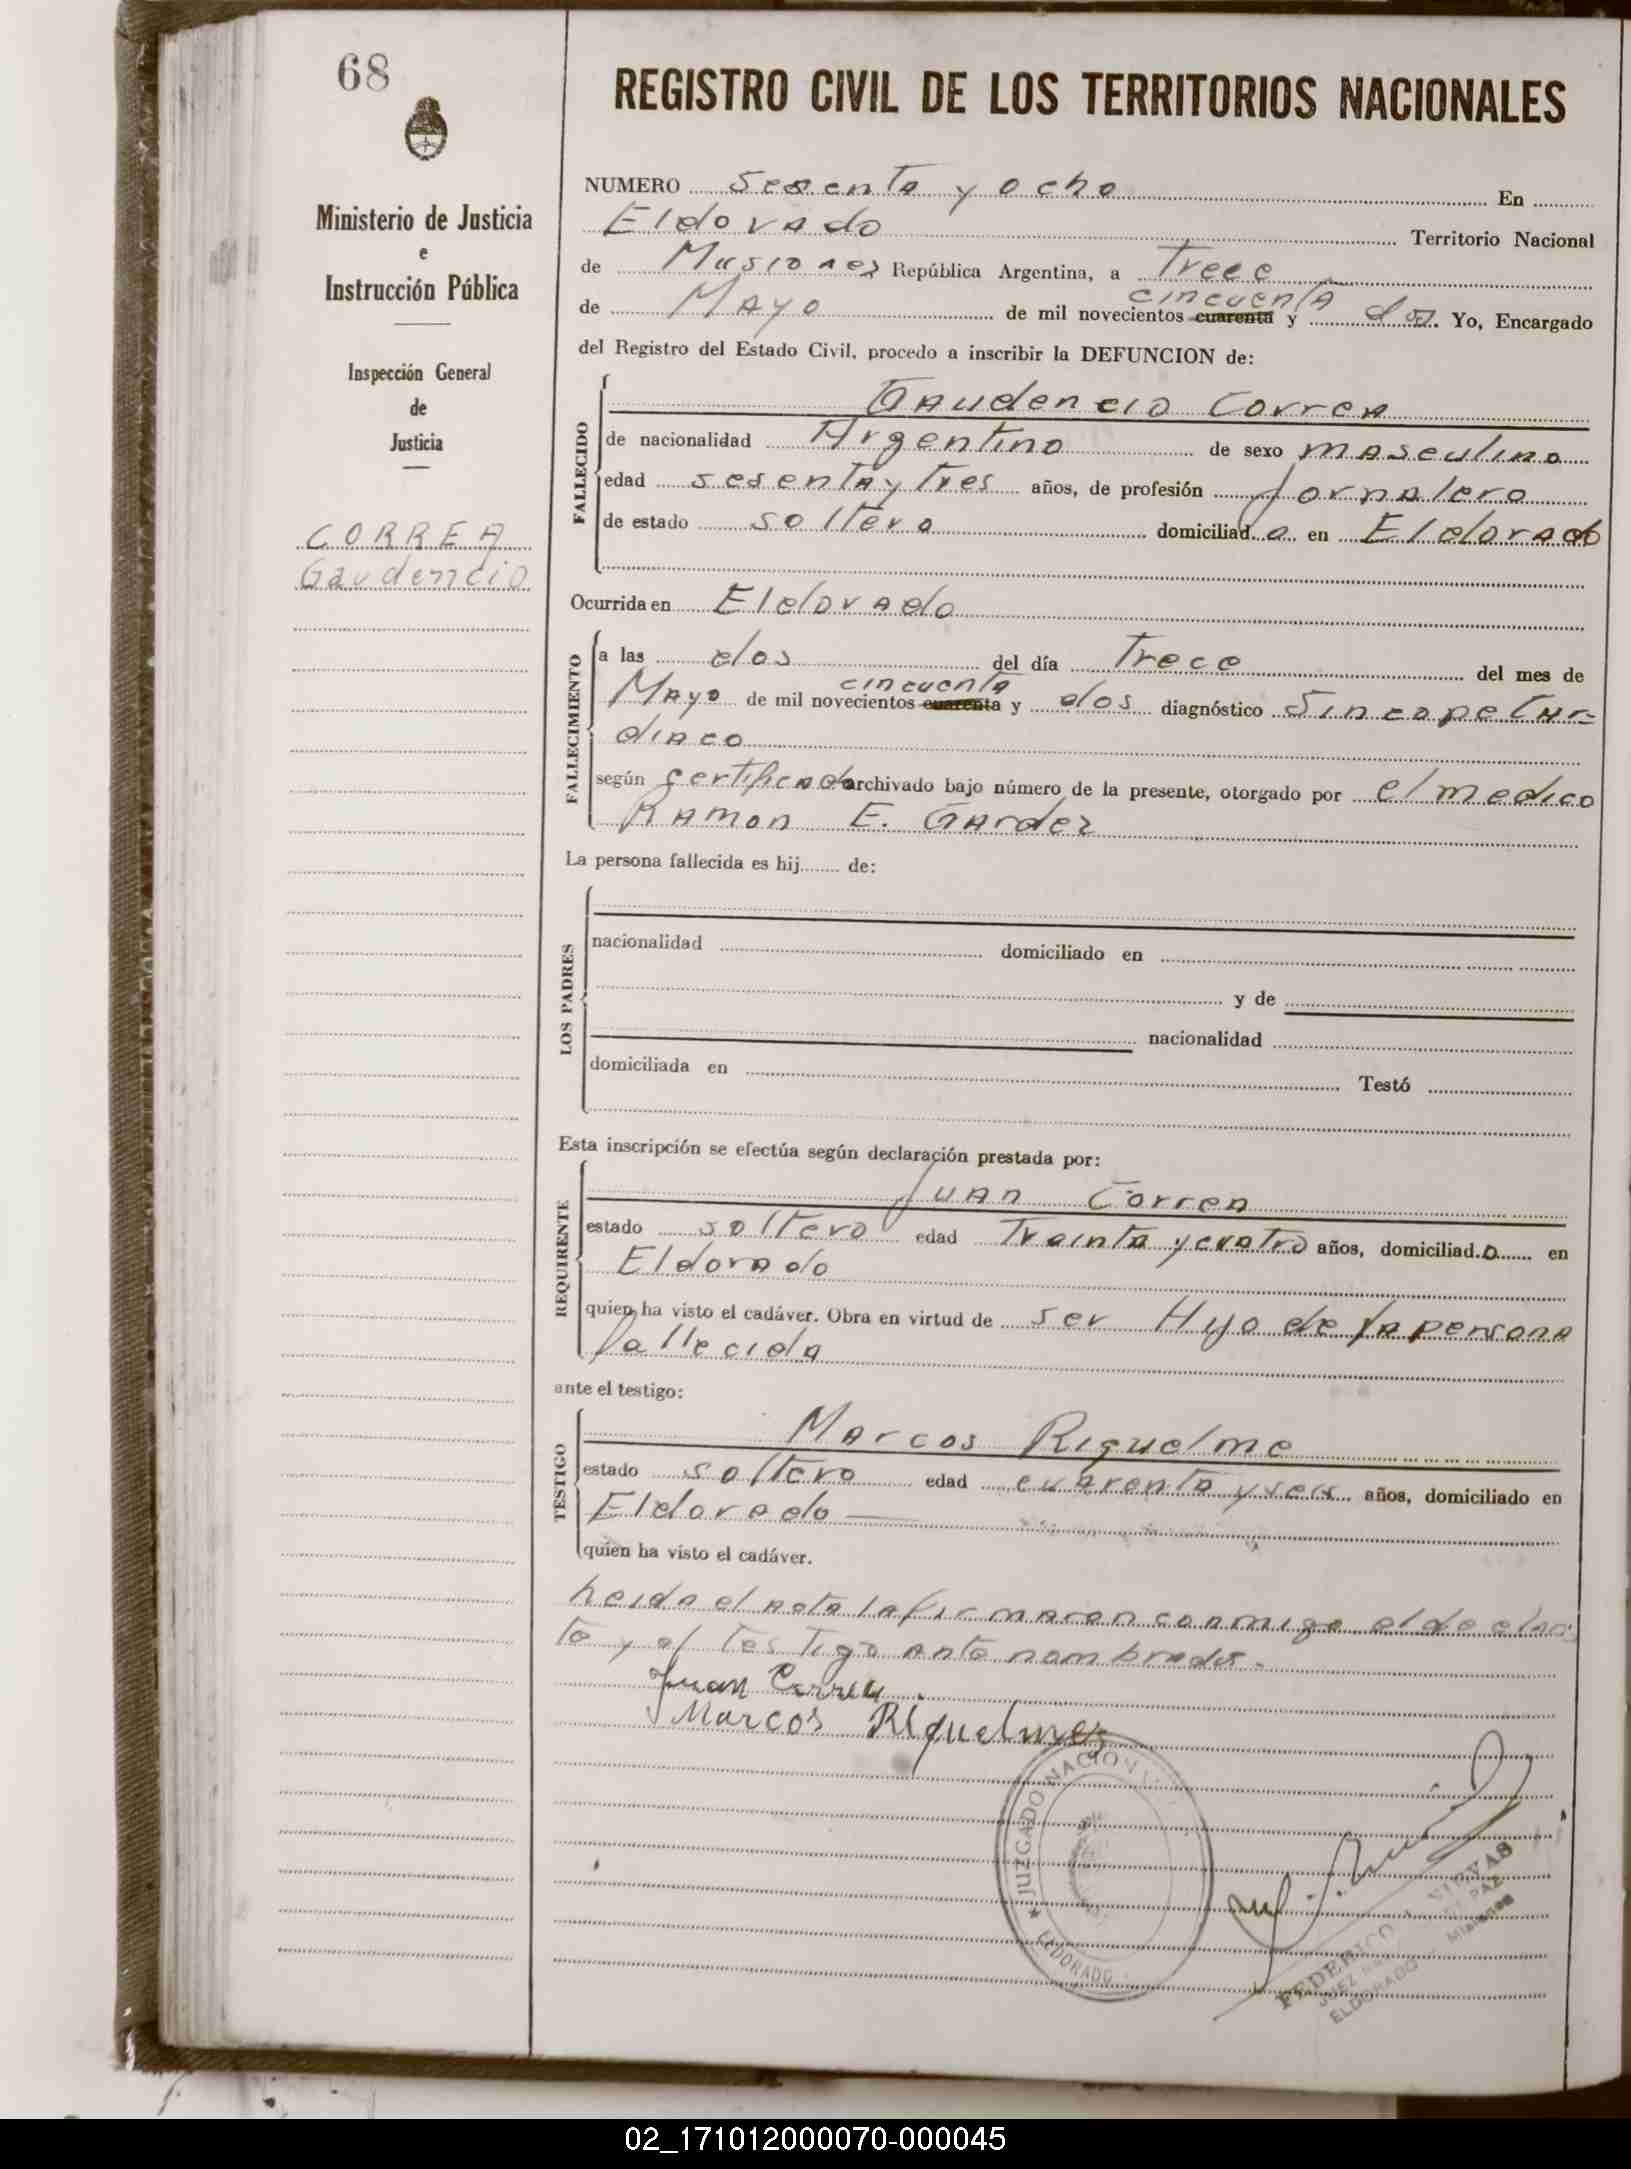 68
REGISTRO CIVIL DE LOS TERRITORIOS NACIONALES
Ministerio de Justicia
e
Instrucción Pública
Inspección General
de
Justicia
CORREA
Gaudencio
NUMERO sesenta y ocho En
Eldorado Territorio Nacional
de Misiones República Argentina, a Trece
cincuenta
de Mayo de mil novecientos cuarenta y dos. Yo, Encargado
del Registro del Estado Civil, procedo a inscribir la DEFUNCION de:
FALLECIDO
Gaudencio Correa
de nacionalidad Argentino de sexo masculino
edad sesenta y tres años, de profesión Jornalero
de estado soltero domiciliad o en Eldorado
Ocurrida en Eldorado
FALLECIMIENTO
a las dos del día Trece del mes de
cincuenta
Mayo de mil novecientos cuarenta y dos diagnóstico Sincope Car-
diaco
según certificado archivado bajo número de la presente, otorgado por el medico
Ramon E. Gardez
La persona fallecida es hij de:
LOS PADRES
nacionalidad domiciliado en
y de
nacionalidad
domiciliada en Testó
Esta inscripción se efectúa según declaración prestada por:
REQUIRENTE
Juan Correa
estado soltero edad Treinta y cuatro años, domiciliad o en
Eldorado
quien ha visto el cadáver. Obra en virtud de ser Hijo de la persona
fallecida
ante el testigo:
TESTIGO
Marcos Riquelme
estado soltero edad cuarenta y seis años, domiciliado en
Eldorado
quien ha visto el cadáver.
Leida el acta la firmaron conmigo el declaran
te y el testigo ante nombrados.
Juan Correa
Marcos Riquelmez
JUZGADO NACIONAL
★ ELDORADO
FEDERICO
JUEZ PAZ
ELDORADO - Misiones
02_171012000070-000045